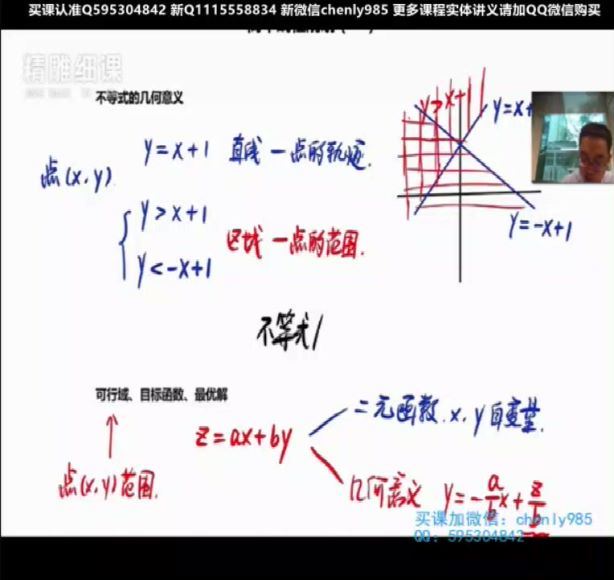 买课认准Q595304842 新Q1115558834 新微信chenly985 更多课程实体讲义请加QQ微信购买
精雕细课
不等式的几何意义
y>x+1
y=x+
点(x,y)
y=x+1 直线—点的轨迹.
y>x+1
y<-x+1
区域—点的范围.
y=-x+1
不等式
可行域、目标函数、最优解
z=ax+by
二元函数.x,y自变量.
点(x,y)范围.
几何意义 y=-a/b x+z/b
买课加微信:chenly985
QQ:595304842